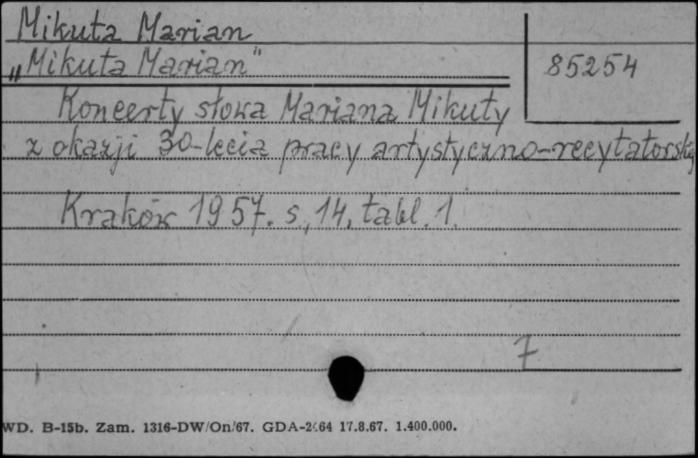 Mikuta Marian
„Mikuta Marian"
85254
Koncerty słowa Mariana Mikuty
z okazji 30-lecia pracy artystyczno-recytatorskiej
Kraków 1957. s. 14, tabl. 1.
7
WD. B-15b. Zam. 1316-DW/On/67. GDA-2464 17.8.67. 1.400.000.